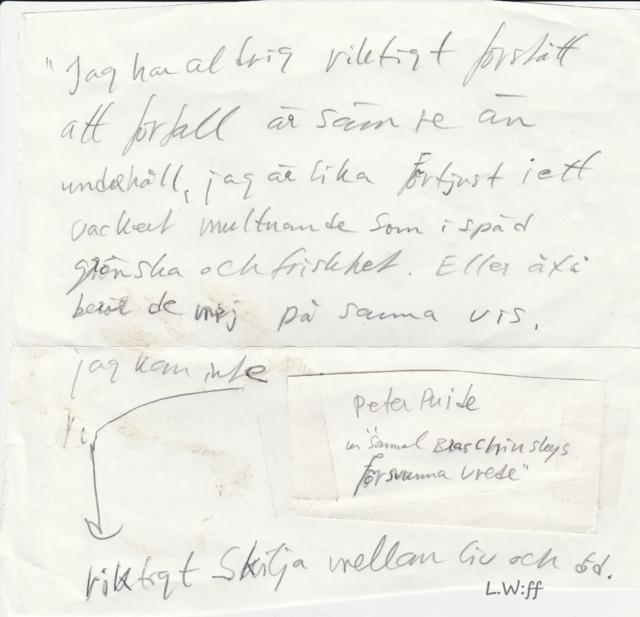 "Jag har aldrig riktigt förstått
att förfall är sämre än
underhåll, jag är lika förtjust i ett
vackert multnande som i späd
grönska och friskhet. Eller åxå
berör de mej på samma vis.
jag kan inte
Peter
ur "Samuel Braschinskys
Försvunna vrede"
riktigt Skilja mellan liv och död.
L.W:ff